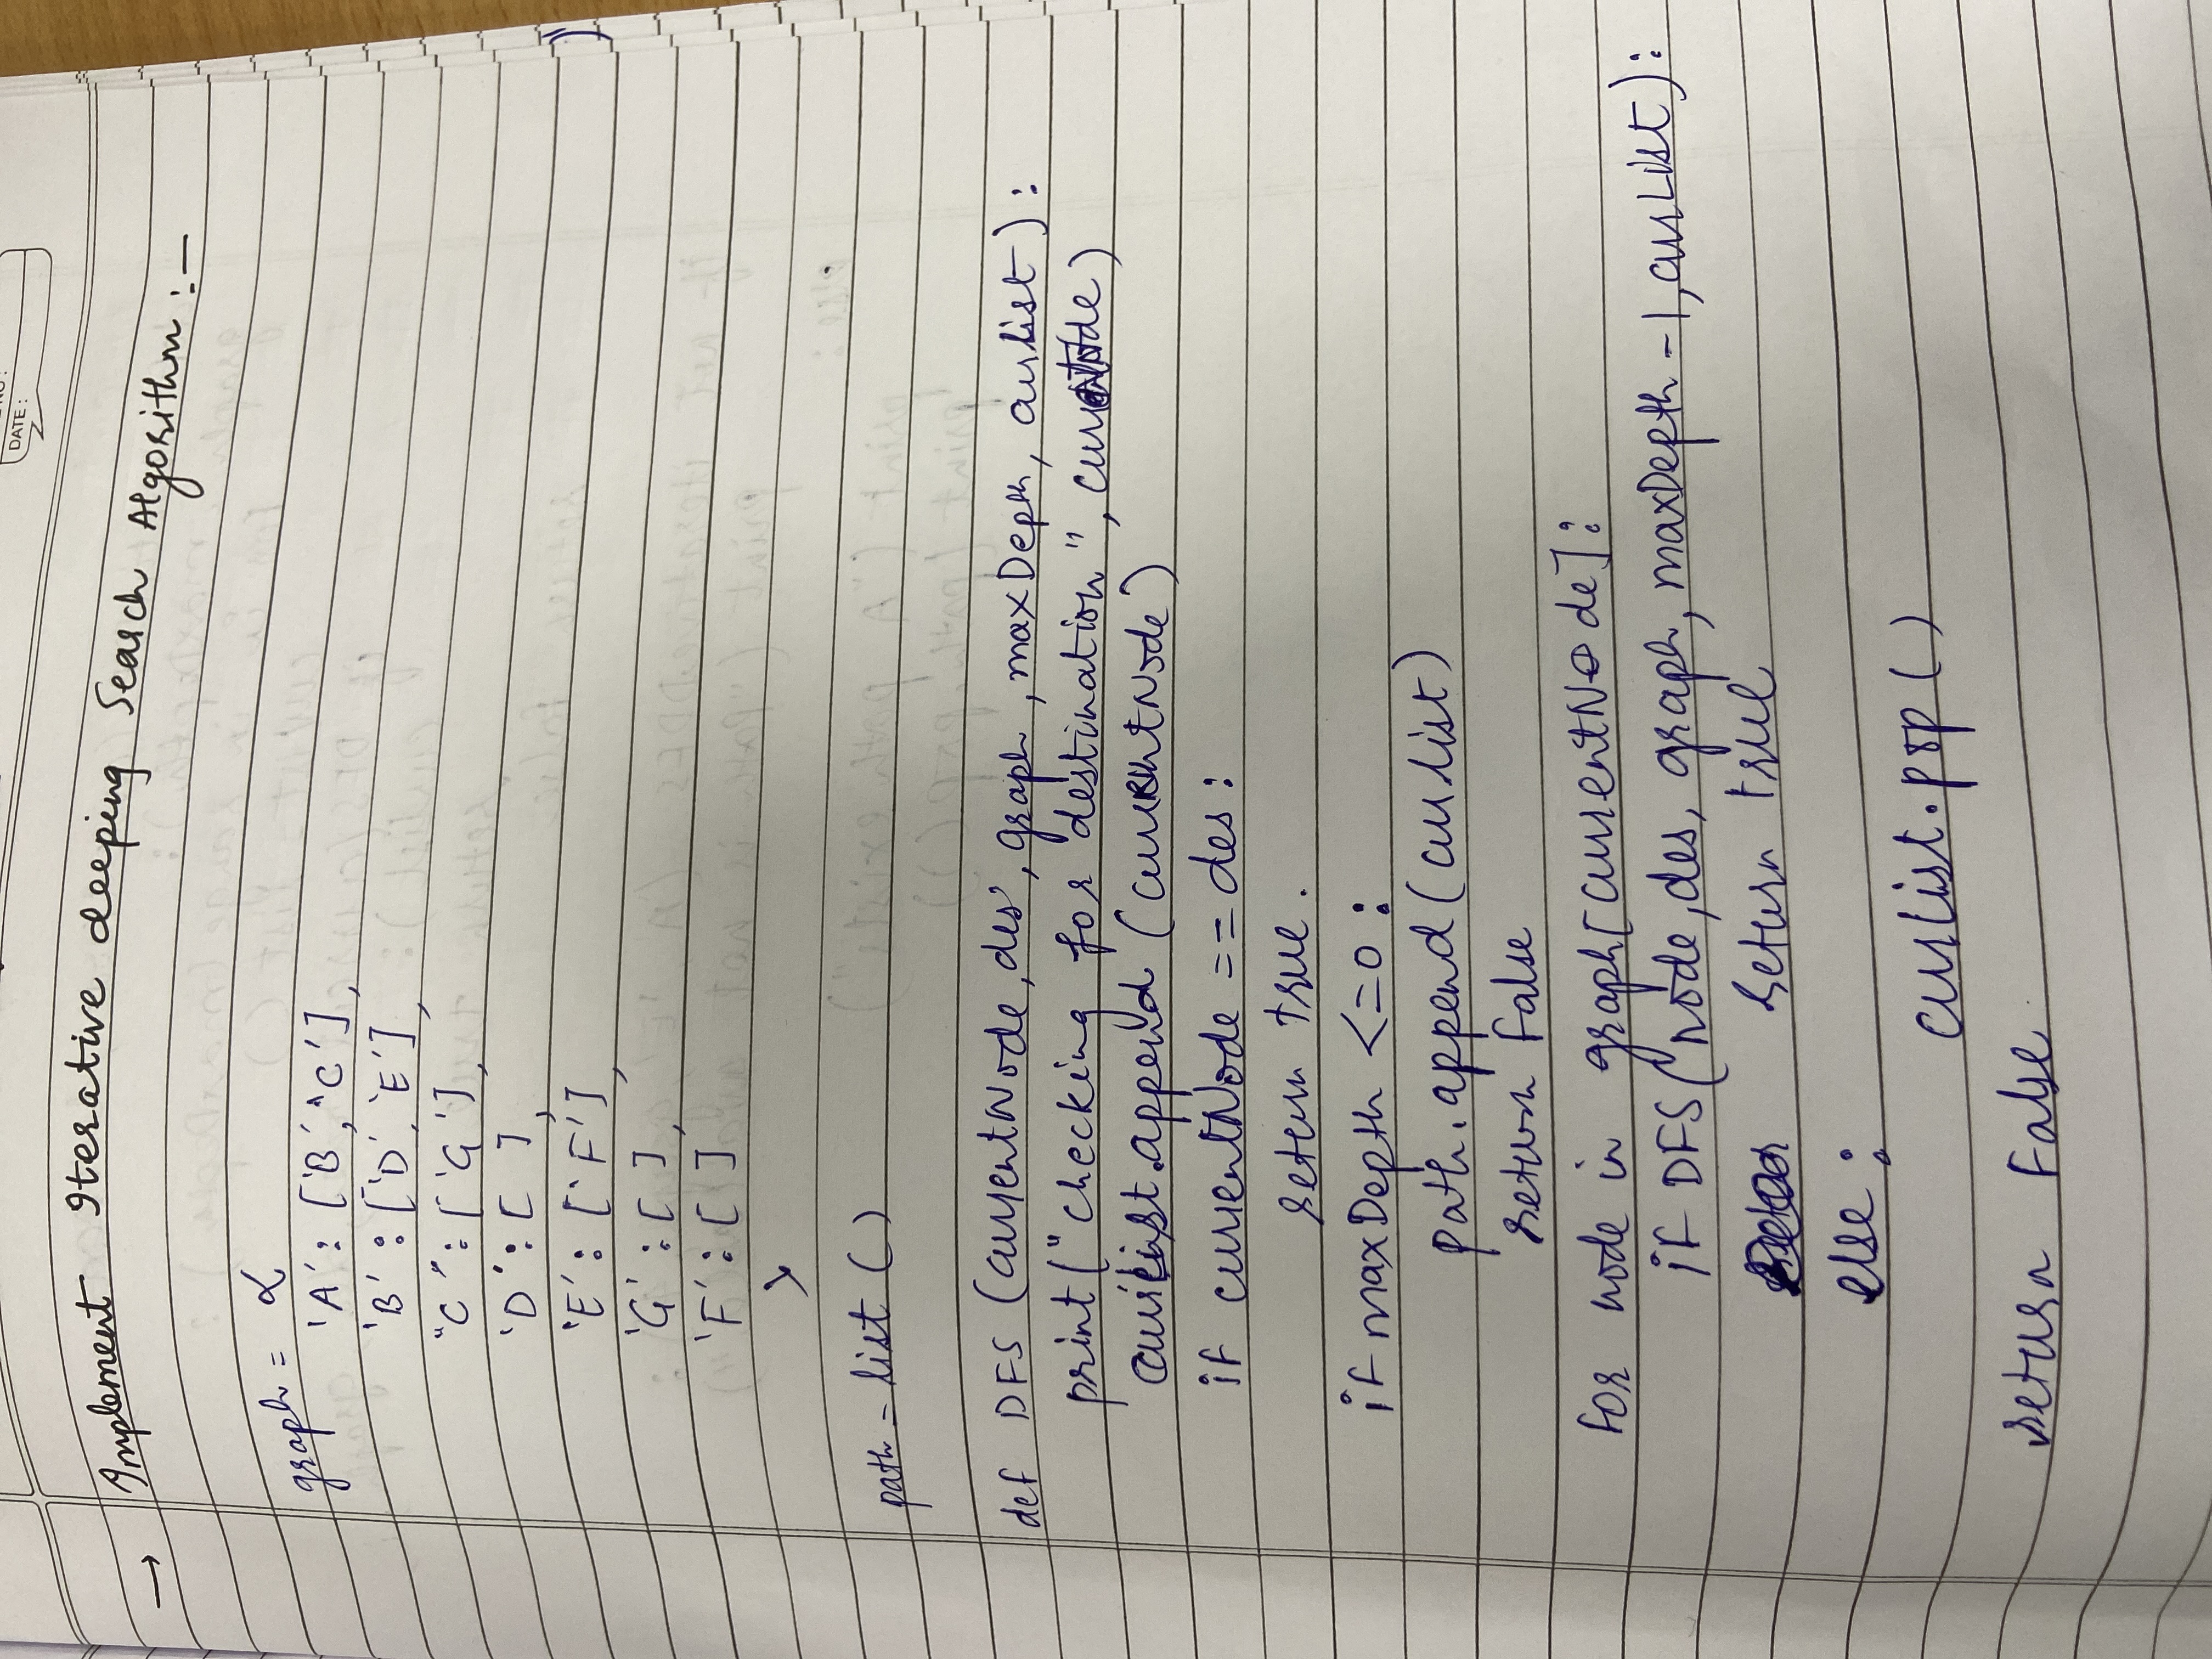 DATE :
→ Implement Iterative deeping Search Algorithm :-
graph = {
'A' : ['B', 'C'],
'B' : ['D', 'E'],
"C" : ['G'],
'D' : [ ],
'E' : ['F'],
'G' : [ ],
'F' : [ ]
}
path = list ()
def DFS (currentNode, des, graph, maxDepth, curlist) :
print ("checking for destination", currentNode)
curlist.append (currentNode)
if currentNode == des :
return true.
if maxDepth <=0 :
path.append (curlist)
return False
for node in graph[currentNode] :
if DFS (node, des, graph, maxDepth -1, curList) :
return true
else :
curlist.pop ( )
return False